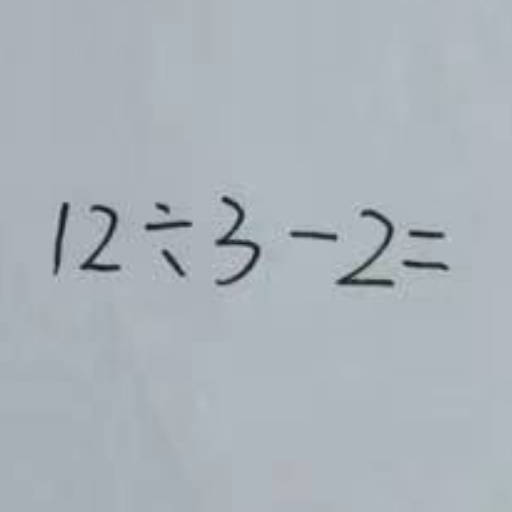 12÷3-2=